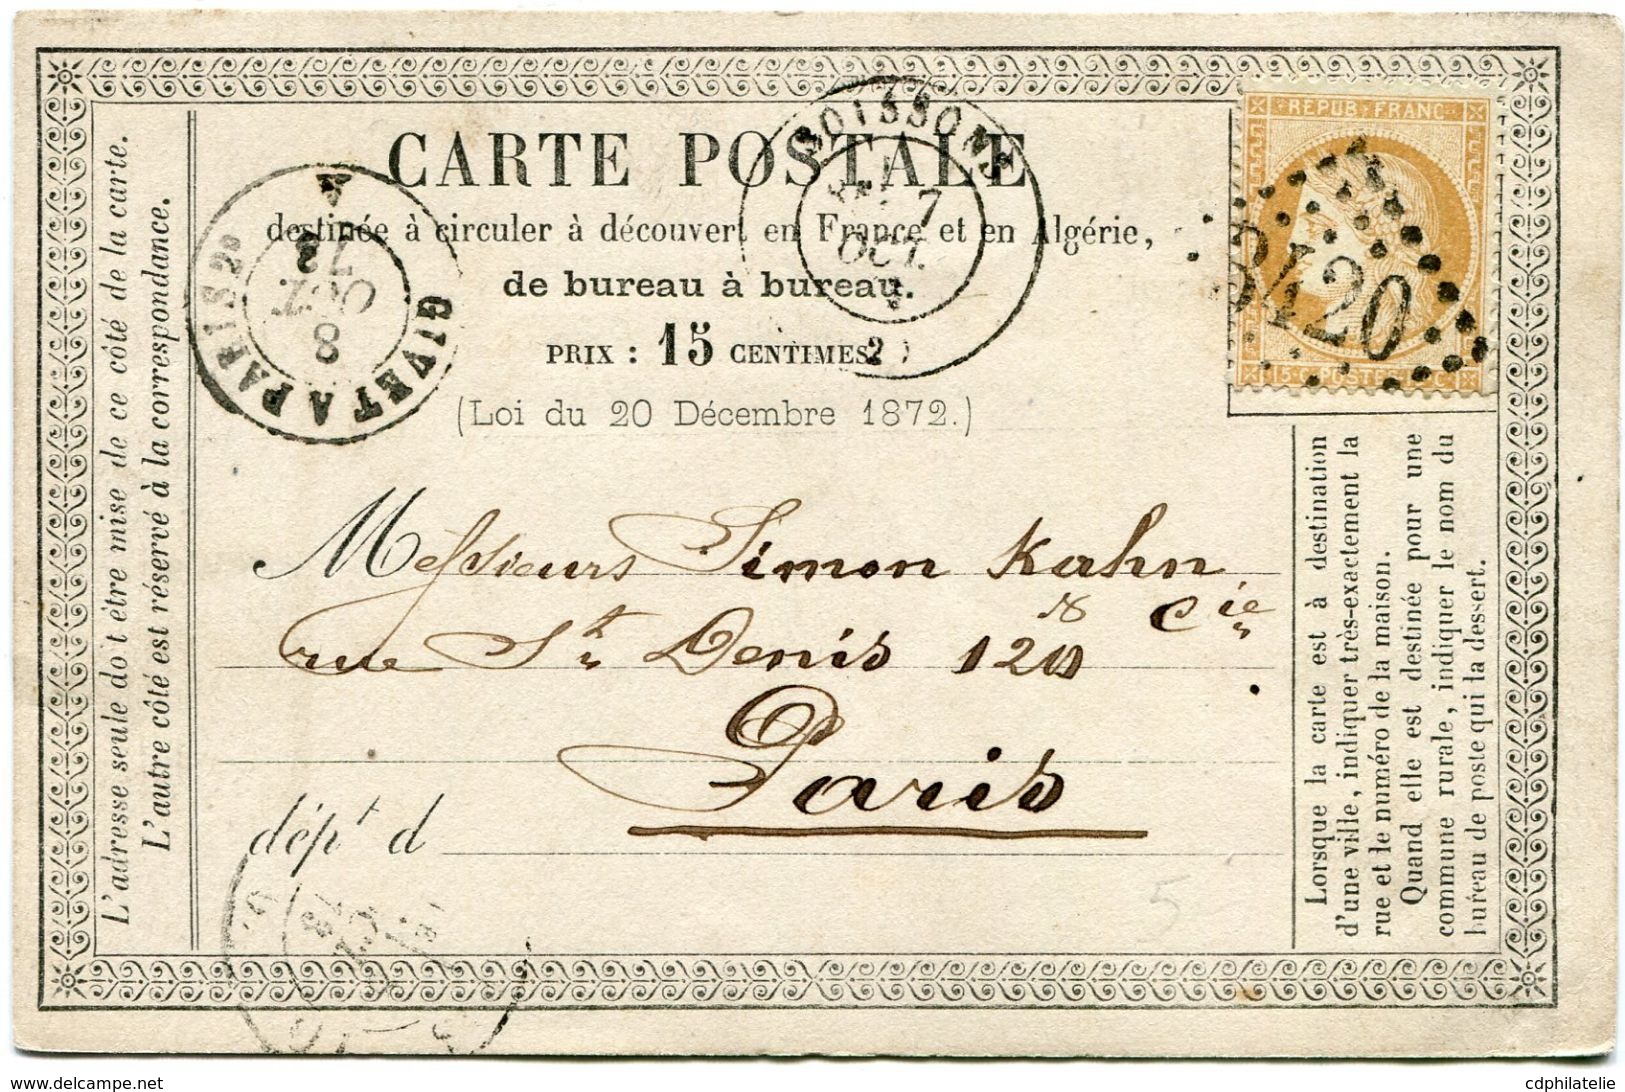 CARTE POSTALE
destinée à circuler à découvert en France et en Algérie,
de bureau à bureau.
PRIX : 15 CENTIMES.
(Loi du 20 Décembre 1872.)
SOISSONS
7
OCT.
2
GIVET A PARIS 2º
8
OCT
73
REPUB. FRANC.
15 C. POSTES 15 C.
3420
L'adresse seule doit être mise de ce côté de la carte.
L'autre côté est réservé à la correspondance.
Messieurs Simon Kahn
& Cie
rue St Denis 120
Paris
dépt d
73
5
Lorsque la carte est à destination
d'une ville, indiquer très-exactement la
rue et le numéro de la maison.
Quand elle est destinée pour une
commune rurale, indiquer le nom du
bureau de poste qui la dessert.
www.delcampe.net
cdphilatelie